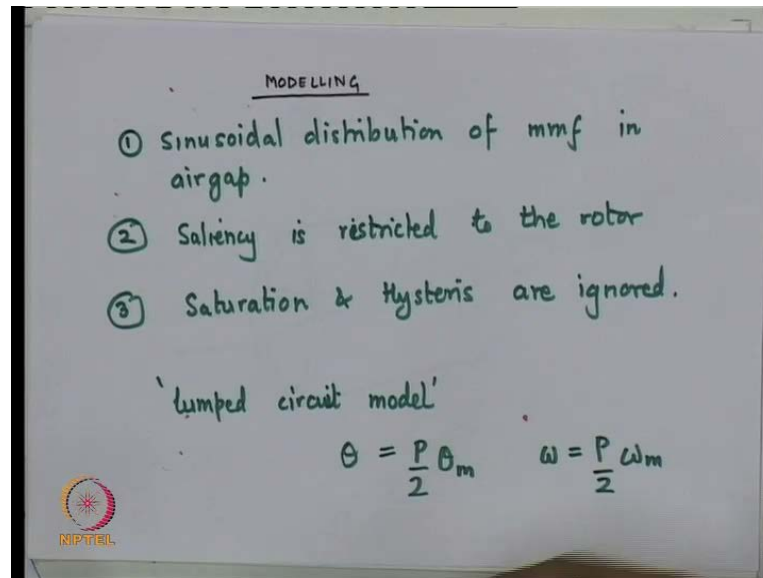 MODELLING
① Sinusoidal distribution of mmf in
airgap.
② Saliency is restricted to the rotor
③ Saturation & Hysteris are ignored.
'lumped circuit model'
θ = P/2 θm ω = P/2 ωm
NPTEL